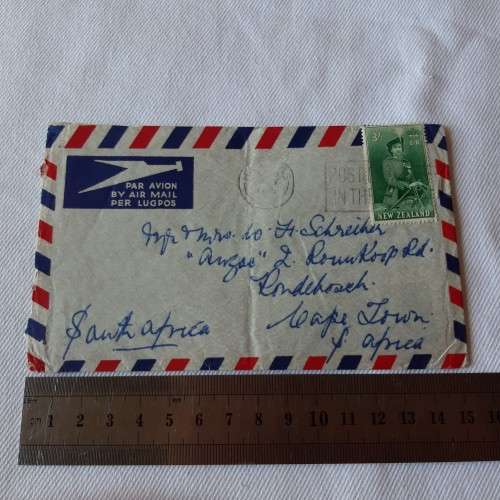 PAR AVION
BY AIR MAIL
PER LUGPOS
POST
IN TH
3/-
NEW ZEALAND
Mr & Mrs. W. H. Schreiber
"Angas" 2. Rd.
Rondebosch.
Cape Town.
S Africa
South Africa
1 2 3 4 5 6 7 8 9 10 11 12 13 14 15 16